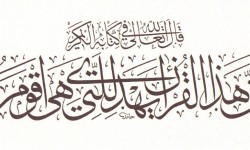 قال الله تعالى في كتابه الكريم
ن هذا القرآن يهدي للتي هي أقوم